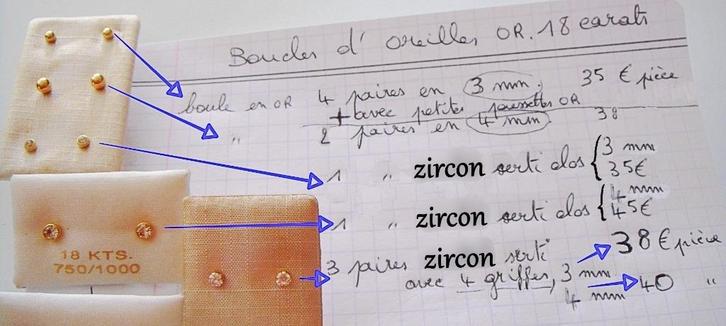 Boucles d'Oreilles OR. 18 carats
boule en OR 4 paires en 3 mm. 35 € pièce
+ avec petites poussettes OR
" 2 paires en 4 mm 38
1 " zircon serti clos { 3 mm 35€
1 " zircon serti clos { 4 mm 45€
3 paires zircon serti 38 € pièce
avec 4 griffes, 3 mm
4 mm 40 "
18 KTS.
750/1000